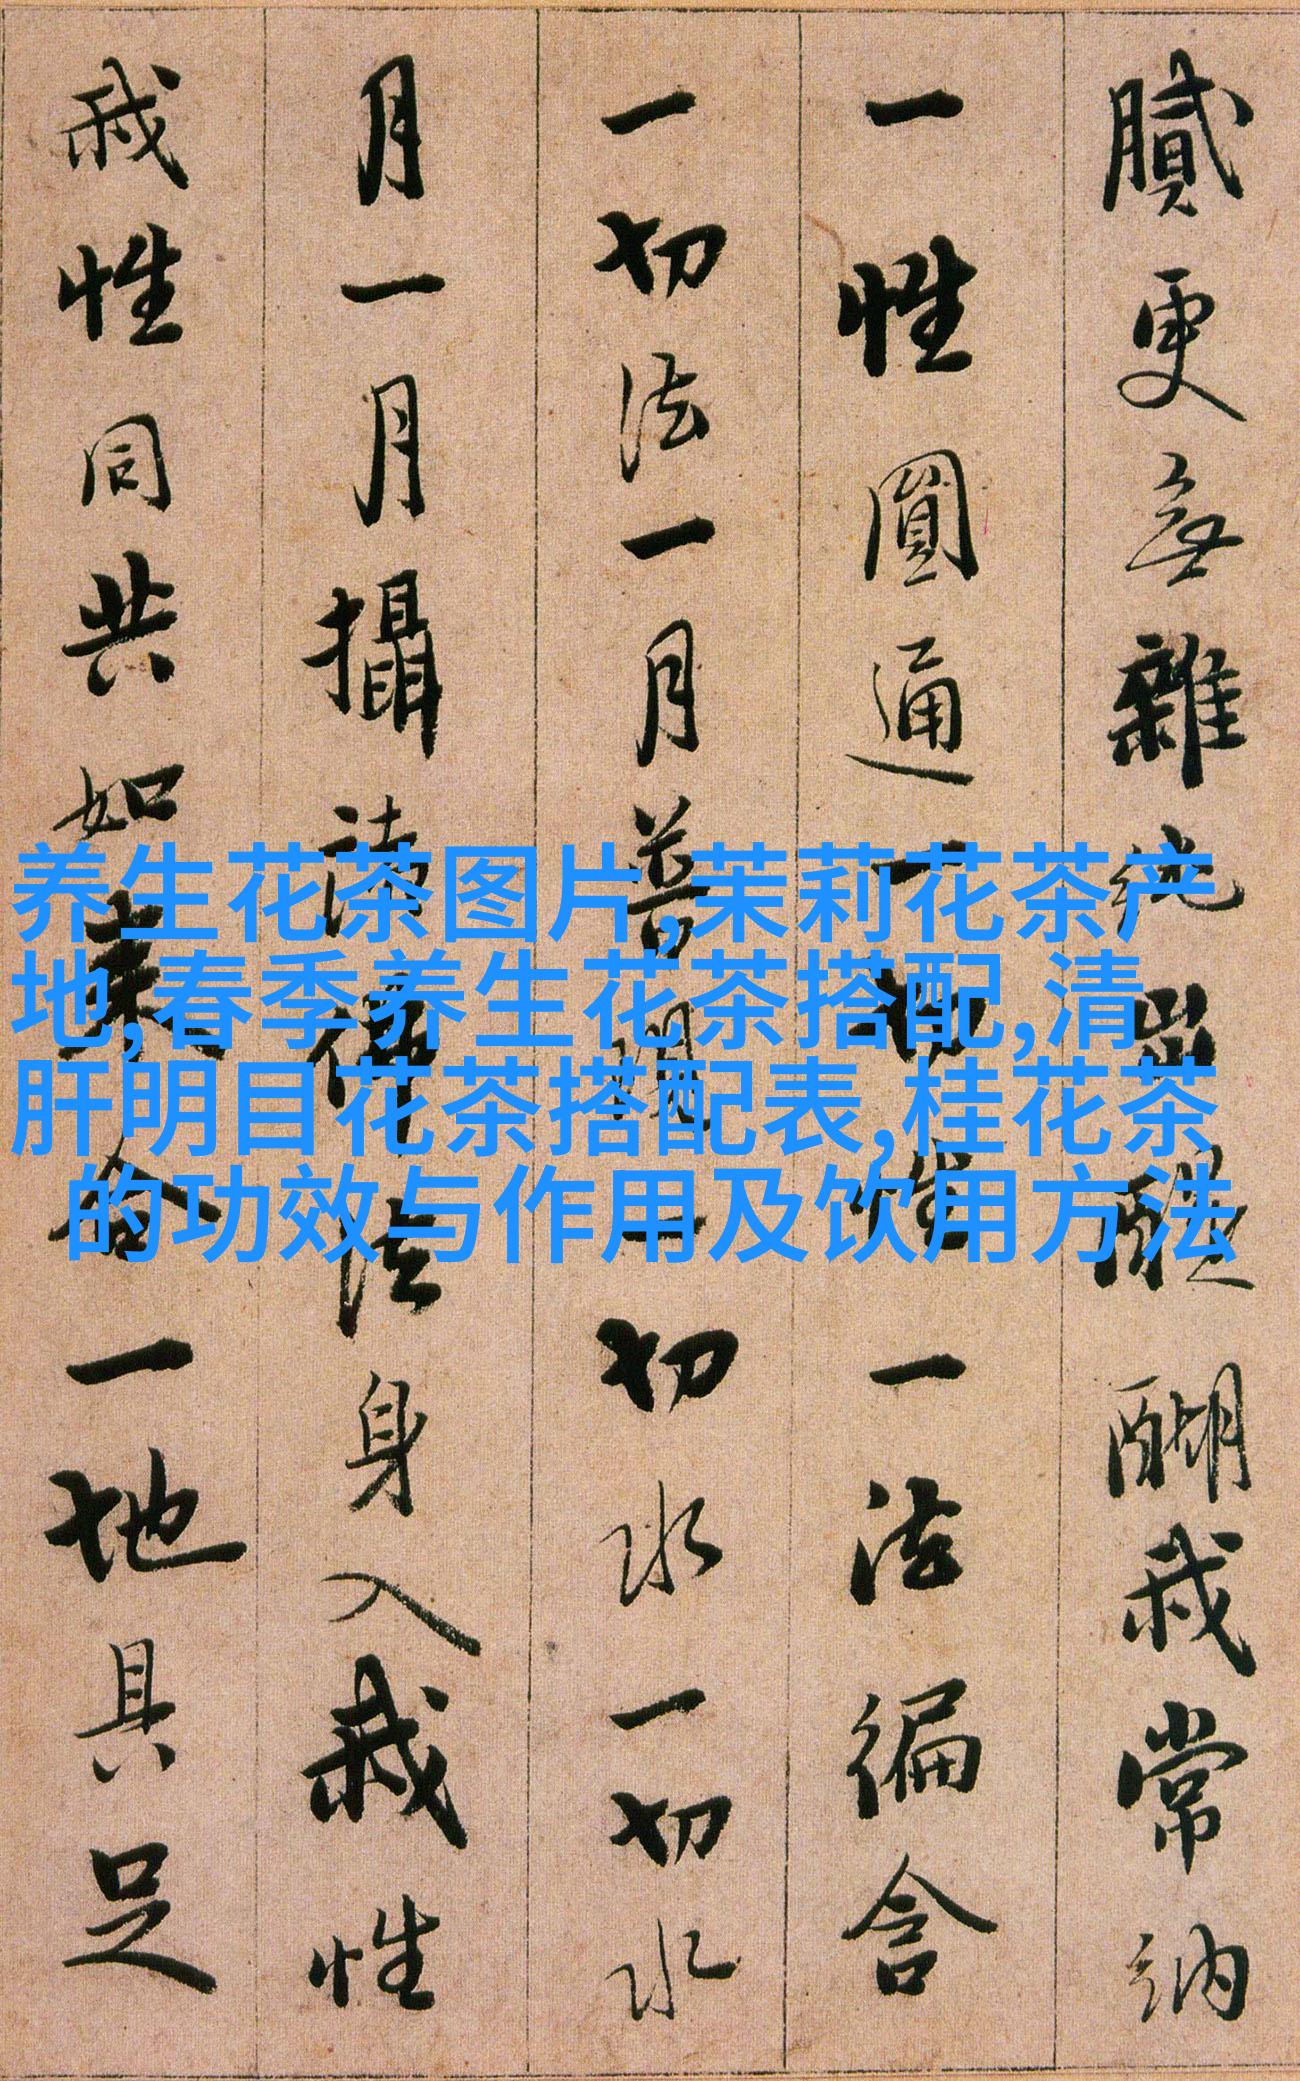 膩更無雜純出醍醐我常納
一性圓通一切性一法徧含
一切法一月普現一切水一切水
月一月攝諸佛法身入我性
我性同共如来合一地具足
养生花茶图片,茉莉花茶产
地,春季养生花茶搭配,清
肝明目花茶搭配表,桂花茶
的功效与作用及饮用方法